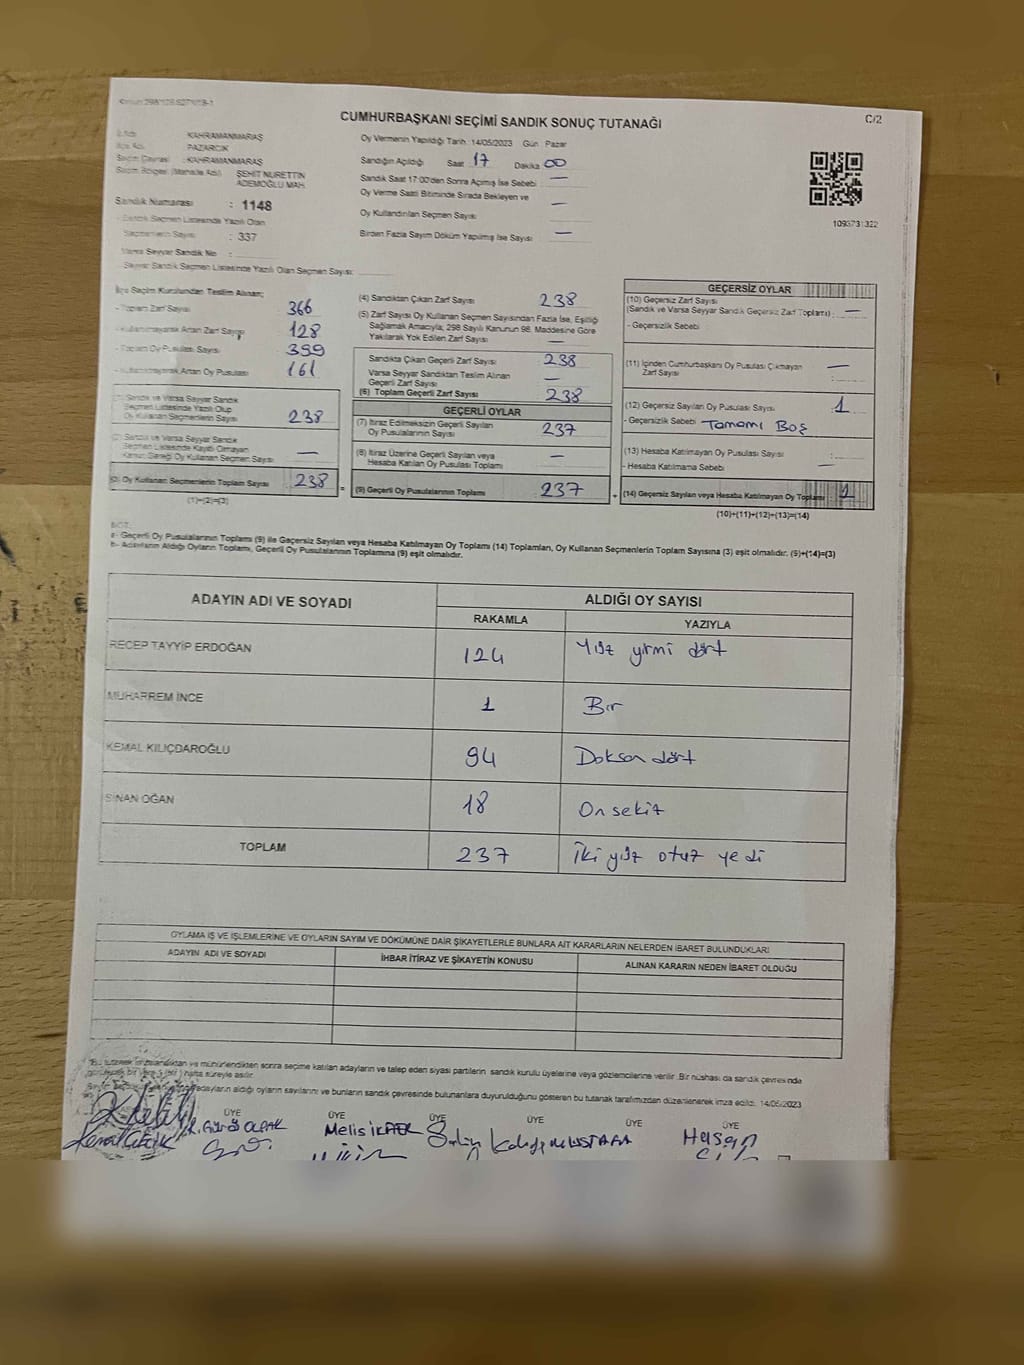 CUMHURBAŞKANI SEÇİMİ SANDIK SONUÇ TUTANAĞI
C/2
İli Adı KAHRAMANMARAŞ
İlçe Adı PAZARCIK
Seçim Çevresi : KAHRAMANMARAŞ
Seçim Bölgesi (Mahalle Adı) ŞEHİT NURETTİN
ADEMOĞLU MAH.
Sandık Numarası : 1148
- Sandık Seçmen Listesinde Yazılı Olan
Seçmenlerin Sayısı : 337
Varsa Seyyar Sandık No :
- Seyyar Sandık Seçmen Listesinde Yazılı Olan Seçmen Sayısı:
Oy Vermenin Yapıldığı Tarih: 14/05/2023 Gün: Pazar
Sandığın Açıldığı Saat 17 Dakika 00
Sandık Saat 17:00'den Sonra Açılmış İse Sebebi : —
Oy Verme Saati Bitiminde Sırada Bekleyen ve
Oy Kullandırılan Seçmen Sayısı : —
Birden Fazla Sayım Döküm Yapılmış İse Sayısı : —
1093731322
İlçe Seçim Kurulundan Teslim Alınan;
- Toplam Zarf Sayısı 366
- Kullanılmayarak Artan Zarf Sayısı 128
- Toplam Oy Pusulası Sayısı 399
- Kullanılmayarak Artan Oy Pusulası 161
(1) Sandık ve Varsa Seyyar Sandık
Seçmen Listesinde Yazılı Olup
Oy Kullanan Seçmenlerin Sayısı : 238
(2) Sandık ve Varsa Seyyar Sandık
Seçmen Listesinde Kayıtlı Olmayan
Kanun Gereği Oy Kullanan Seçmen Sayısı : —
(3) Oy Kullanan Seçmenlerin Toplam Sayısı : 238
(1)+(2)=(3)
(4) Sandıktan Çıkan Zarf Sayısı : 238
(5) Zarf Sayısı Oy Kullanan Seçmen Sayısından Fazla İse, Eşitliği
Sağlamak Amacıyla, 298 Sayılı Kanunun 98. Maddesine Göre
Yakılarak Yok Edilen Zarf Sayısı : —
Sandıkta Çıkan Geçerli Zarf Sayısı : 238
Varsa Seyyar Sandıktan Teslim Alınan
Geçerli Zarf Sayısı : —
(6) Toplam Geçerli Zarf Sayısı : 238
GEÇERLİ OYLAR
(7) İtiraz Edilmeksizin Geçerli Sayılan
Oy Pusulalarının Sayısı : 237
(8) İtiraz Üzerine Geçerli Sayılan veya
Hesaba Katılan Oy Pusulası Toplamı : —
= (9) Geçerli Oy Pusulalarının Toplamı : 237
GEÇERSİZ OYLAR
(10) Geçersiz Zarf Sayısı
(Sandık ve Varsa Seyyar Sandık Geçersiz Zarf Toplamı) : —
- Geçersizlik Sebebi
(11) İçinden Cumhurbaşkanı Oy Pusulası Çıkmayan
Zarf Sayısı : —
(12) Geçersiz Sayılan Oy Pusulası Sayısı : 1
- Geçersizlik Sebebi Tamamı Boş
(13) Hesaba Katılmayan Oy Pusulası Sayısı :
- Hesaba Katılmama Sebebi —
+ (14) Geçersiz Sayılan veya Hesaba Katılmayan Oy Toplamı : 1
(10)+(11)+(12)+(13)=(14)
NOT:
a- Geçerli Oy Pusulalarının Toplamı (9) ile Geçersiz Sayılan veya Hesaba Katılmayan Oy Toplamı (14) Toplamları, Oy Kullanan Seçmenlerin Toplam Sayısına (3) eşit olmalıdır. (9)+(14)=(3)
b- Adayların Aldığı Oyların Toplamı, Geçerli Oy Pusulalarının Toplamına (9) eşit olmalıdır.
ADAYIN ADI VE SOYADI ALDIĞI OY SAYISI
RAKAMLA YAZIYLA
RECEP TAYYİP ERDOĞAN 124 Yüz yirmi dört
MUHARREM İNCE 1 Bir
KEMAL KILIÇDAROĞLU 94 Doksan dört
SİNAN OĞAN 18 On sekiz
TOPLAM 237 İki yüz otuz yedi
OYLAMA İŞ VE İŞLEMLERİNE VE OYLARIN SAYIM VE DÖKÜMÜNE DAİR ŞİKAYETLERLE BUNLARA AİT KARARLARIN NELERDEN İBARET BULUNDUKLARI
ADAYIN ADI VE SOYADI İHBAR İTİRAZ VE ŞİKAYETİN KONUSU ALINAN KARARIN NEDEN İBARET OLDUĞU
imzalandıktan ve mühürlendikten sonra seçime katılan adayların ve talep eden siyasi partilerin sandık kurulu üyelerine veya gözlemcilerine verilir. Bir nüshası da sandık çevresinde
hafta süreyle asılır.
adayların aldığı oyların sayılarını ve bunların sandık çevresinde bulunanlara duyurulduğunu gösteren bu tutanak tarafımızdan düzenlenerek imza edildi. 14/05/2023
ÜYE ÜYE ÜYE ÜYE ÜYE ÜYE
Melis MUSTAFA Hasan